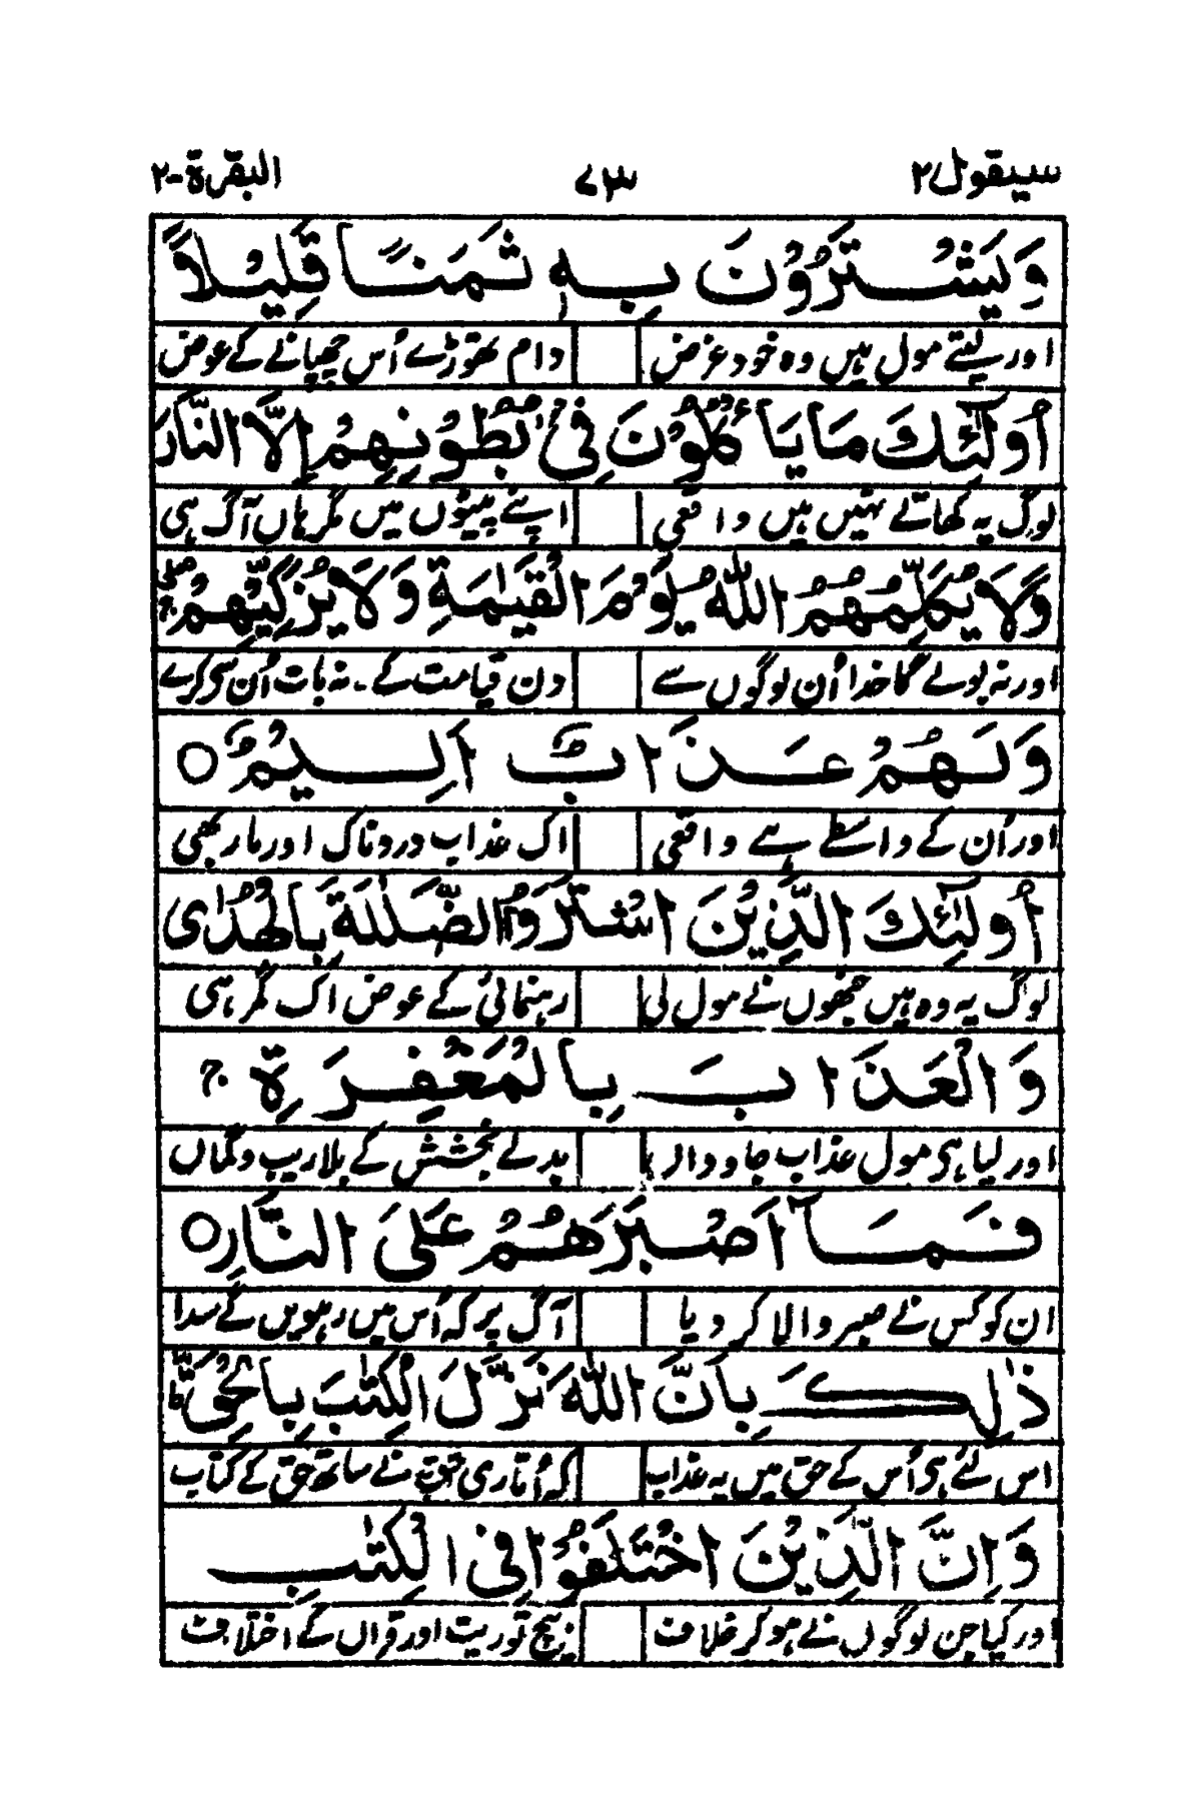 سیقول ۲ ۷۳ البقرة-۲
وَيَشْتَرُوْنَ بِهٖ ثَمَنًا قَلِيْلًاۙ
اور لیتے مول ہیں وہ خود غرض دام تھوڑے اُس چھپانے کے عوض
اُولٰٓئِكَ مَا يَاْكُلُوْنَ فِيْ بُطُوْنِهِمْ اِلَّا النَّارَ
لوگ یہ کھاتے نہیں ہیں واقعی اپنے پیٹوں میں مگر ہاں آگ ہی
وَلَا يُكَلِّمُهُمُ اللّٰهُ يَوْمَ الْقِيٰمَةِ وَلَا يُزَكِّيْهِمْ ۖۚ
اور نہ بولے گا خدا اُن لوگوں سے دن قیامت کے۔ نہ بات اُن سے کرے
وَلَهُمْ عَذَابٌ اَلِيْمٌ ○
اور اُن کے واسطے ہے واقعی اک عذاب دردناک اور مار بھی
اُولٰٓئِكَ الَّذِيْنَ اشْتَرَوُا الضَّلٰلَةَ بِالْهُدٰى
لوگ یہ وہ ہیں جنھوں نے مول لی رہنمائی کے عوض اک گمرہی
وَالْعَذَابَ بِالْمَغْفِرَةِ ۚ
اور لیا ہی مول عذاب جاوداں بدلے بخشش کے بلا ریب و گماں
فَمَآ اَصْبَرَهُمْ عَلَى النَّارِ ○
ان کو کس نے صبر والا کر دیا آگ پر کہ اُس میں رہویں گے سدا
ذٰلِكَ بِاَنَّ اللّٰهَ نَزَّلَ الْكِتٰبَ بِالْحَقِّ ؕ
اس لئے ہی اُس کے حق میں یہ عذاب کہ اُتاری حق نے ساتھ حق کے کتاب
وَاِنَّ الَّذِيْنَ اخْتَلَفُوْا فِى الْكِتٰبِ
اور کیا جن لوگوں نے ہو کر خلاف بیچ توریت اور قرآں کے اختلاف